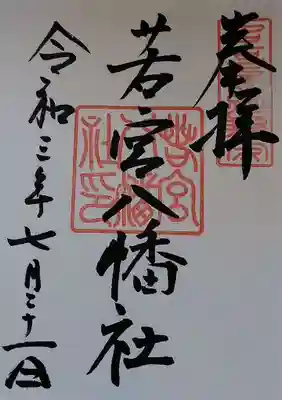 奉拝
若宮八幡社
令和三年七月三十一日